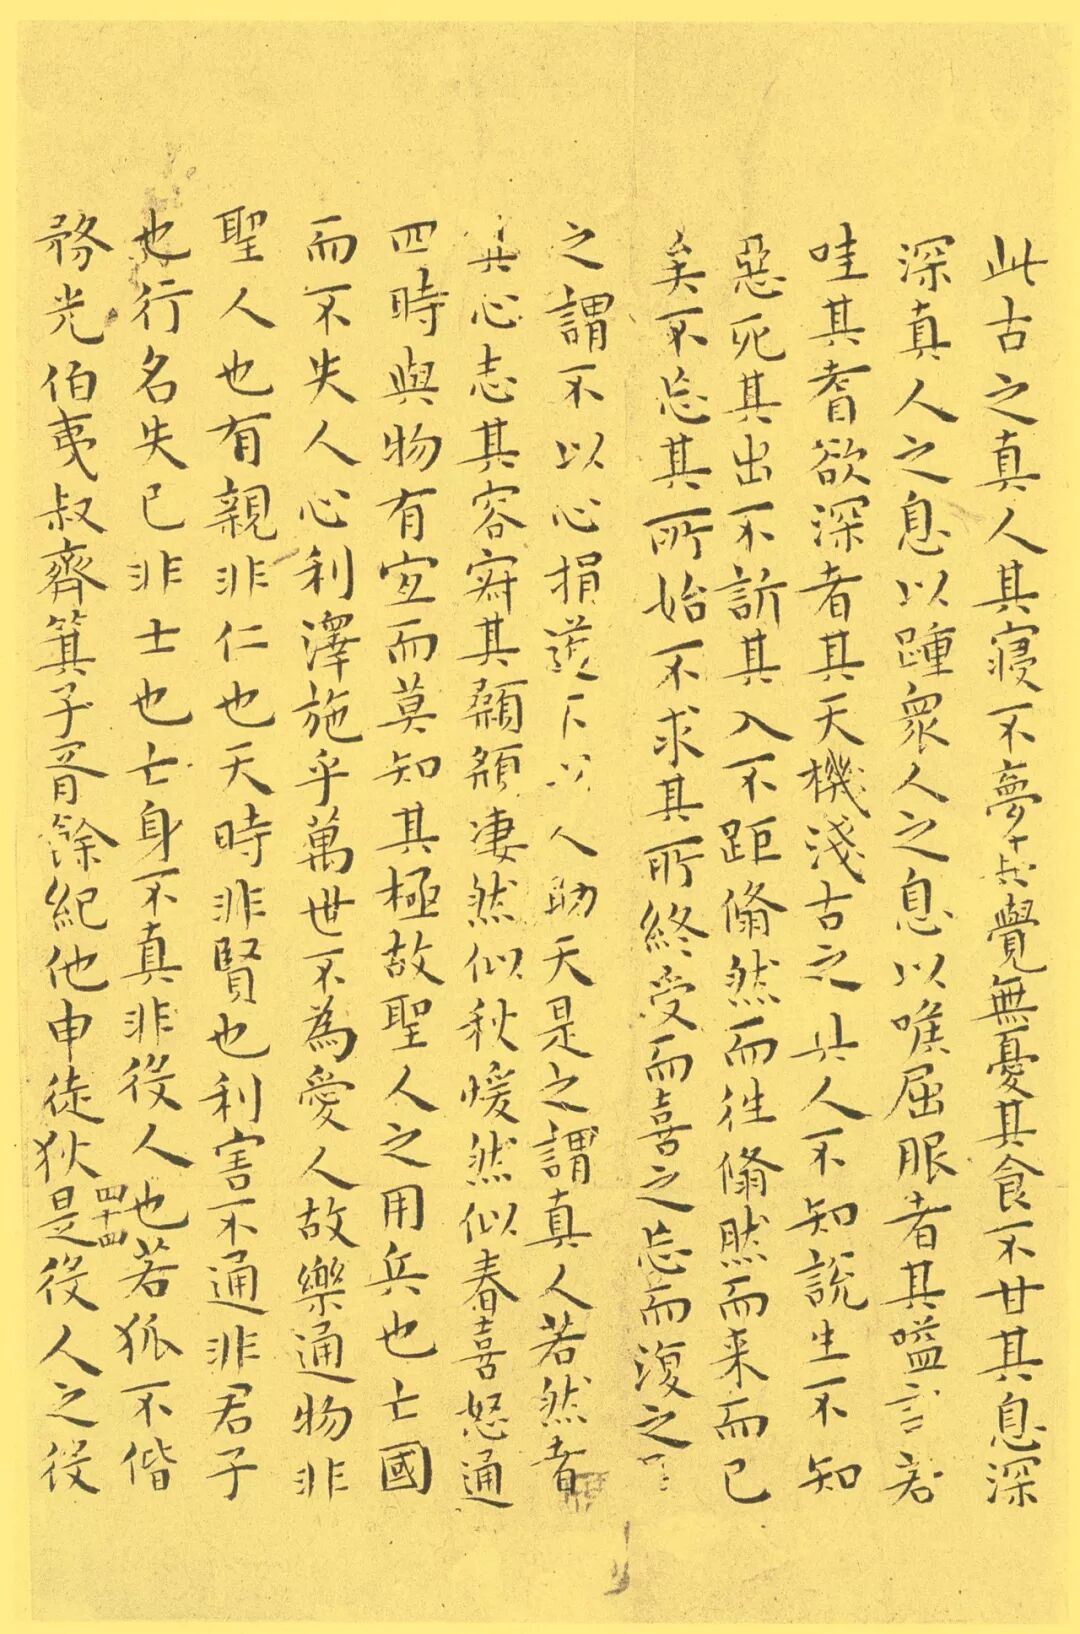 此古之真人其寢不夢其覺無憂其食不甘其息深
深真人之息以踵衆人之息以喉屈服者其嗌言若
哇其耆欲深者其天機淺古之真人不知說生不知
惡死其出不訢其入不距翛然而往翛然而来而已
矣不忘其所始不求其所終受而喜之忘而復之是
之謂不以心損道不以人助天是之謂真人若然者
其心志其容寂其顙頯凄然似秋煖然似春喜怒通
四時與物有宜而莫知其極故聖人之用兵也亡國
而不失人心利澤施乎萬世不為愛人故樂通物非
聖人也有親非仁也天時非賢也利害不通非君子
也行名失已非士也亡身不真非役人也若狐不偕
務光伯夷叔齊箕子胥餘紀他申徒狄是役人之役
四十四